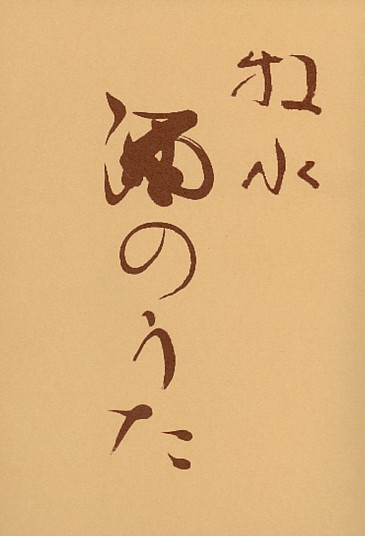 牧水
酒のうた